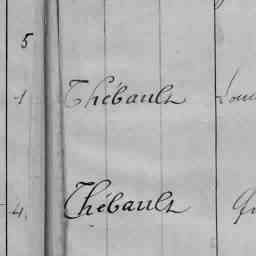 5
1 Thébault
4. Thébault